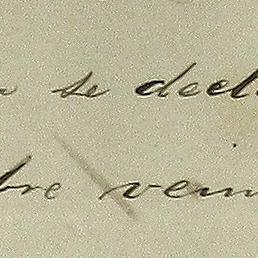 se decl
bre vein